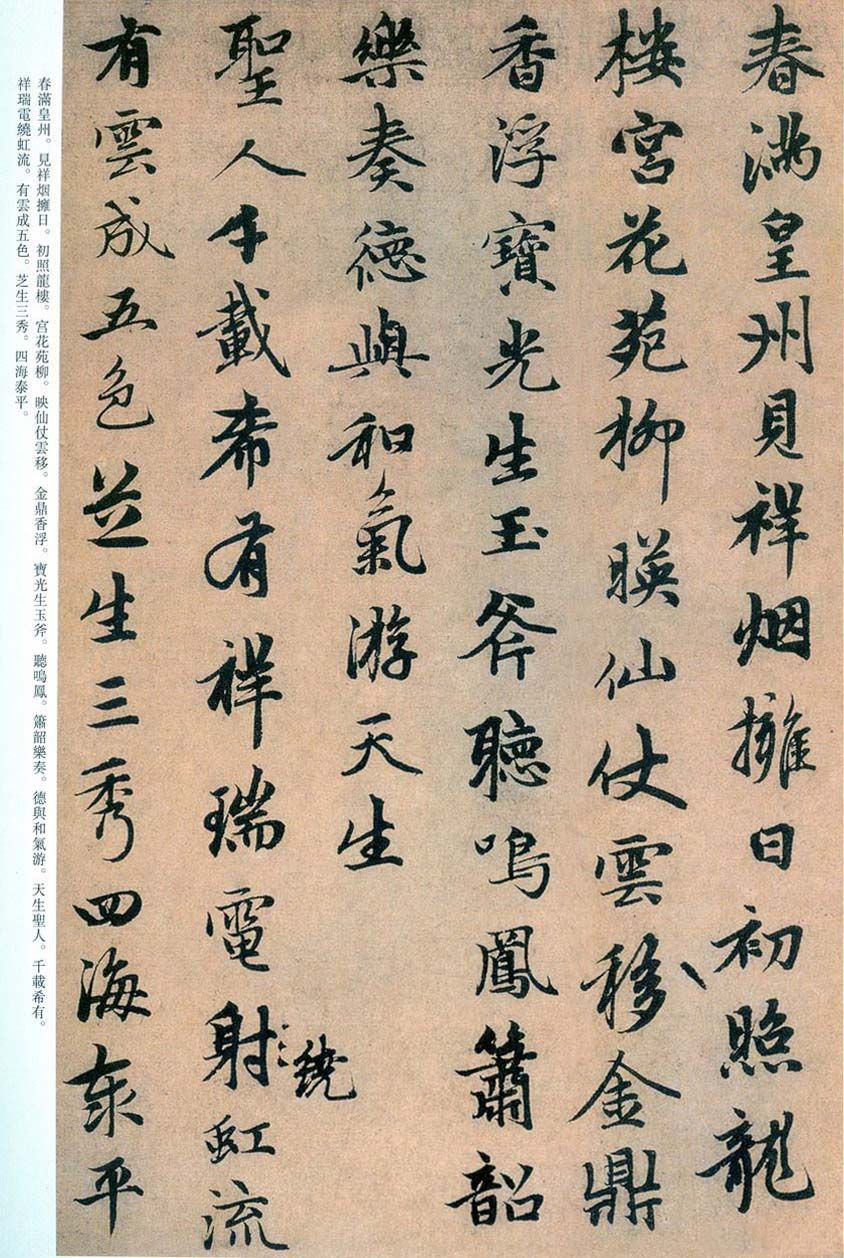 春滿皇州見祥烟擁日初照龍
樓宮花苑柳暎仙仗雲移金鼎
香浮寶光生玉斧聽鳴鳳簫韶
樂奏德與和氣游天生
聖人千載希有祥瑞電射虹流
繞
有雲成五色芝生三秀四海泰平
春滿皇州。見祥烟擁日。初照龍樓。宮花苑柳。映仙仗雲移。金鼎香浮。寶光生玉斧。聽鳴鳳。簫韶樂奏。德與和氣游。天生聖人。千載希有。
祥瑞電繞虹流。有雲成五色。芝生三秀。四海泰平。